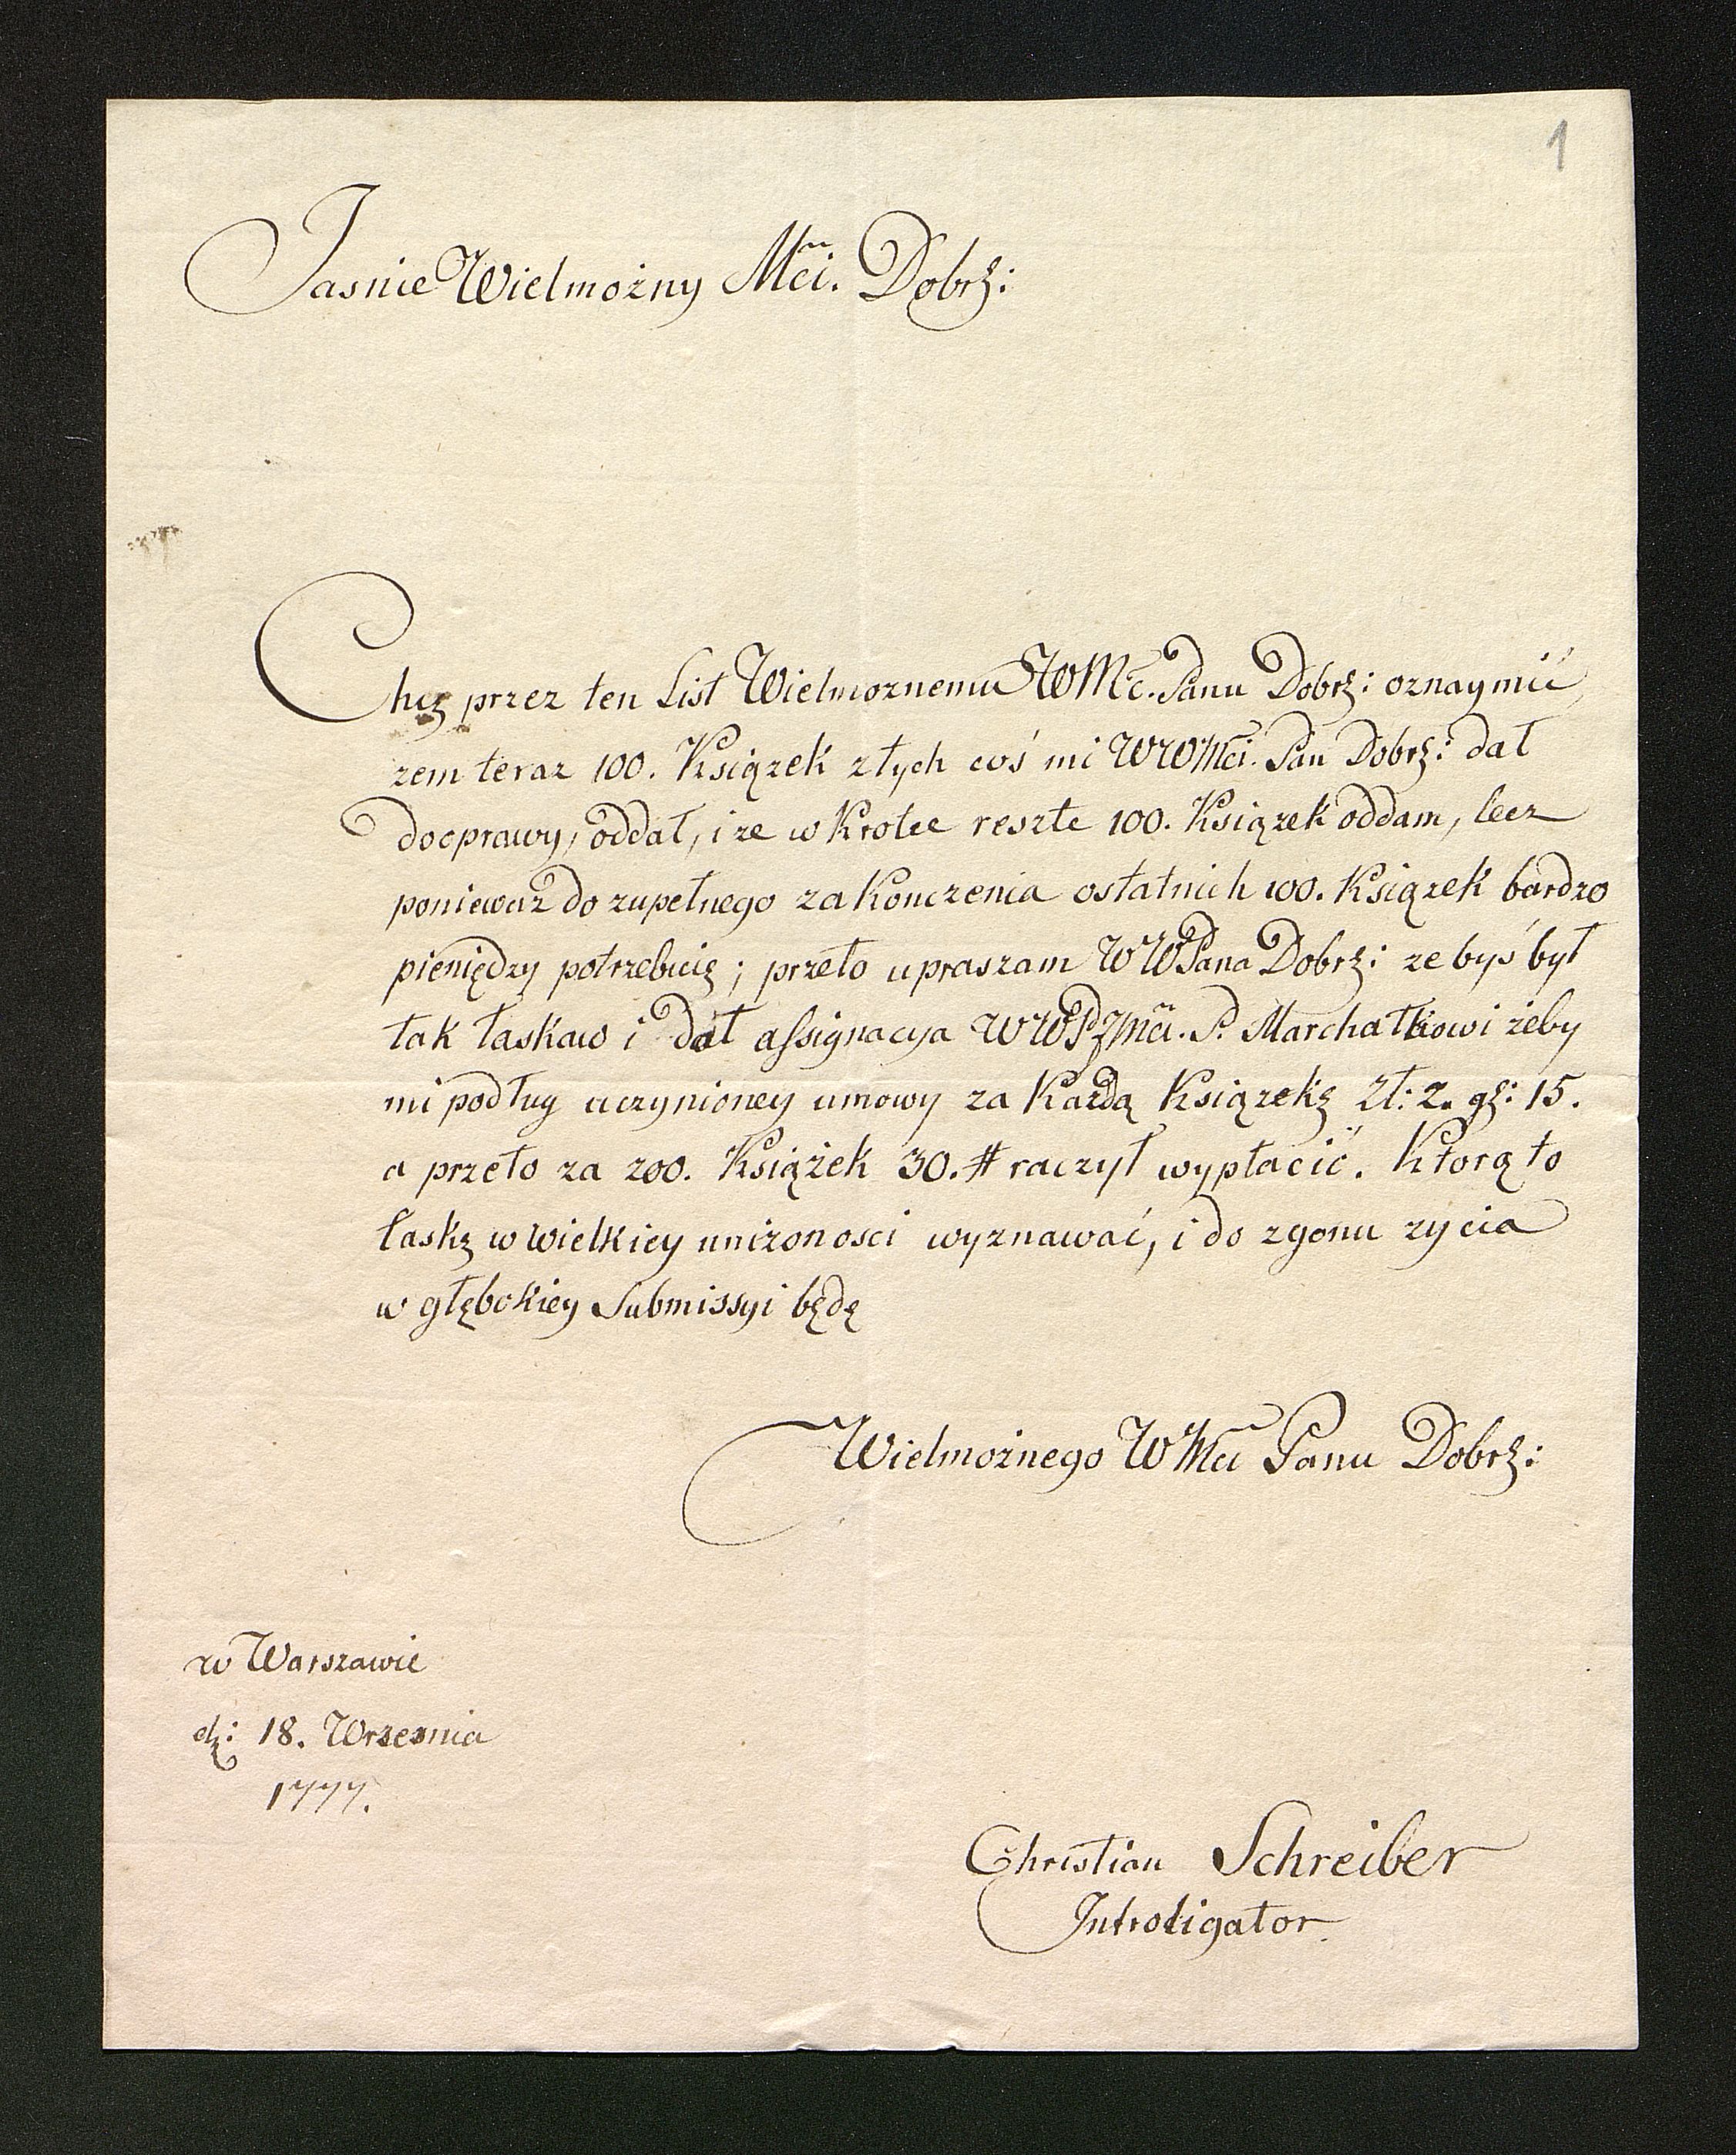 1
Jasnie Wielmożny Mći. Dobrz:
Chcę przez ten List Wielmoznemu WMć. Panu Dobrz: oznaymić
zem teraz 100. Ksiązek z tych coś mi WWMći. Pan Dobrz: dał
do oprawy, oddał, i ze w krotce reszte 100. Ksiązek oddam, lecz
poniewaz do zupełnego zakonczenia ostatnich 100. Ksiązek bardzo
pieniędzy potrzebuię; przeto upraszam WWPana Dobrz: ze byś był
tak łaskaw i dał assignacya WWPJmći. P. Marchałkowi żeby
mi podług uczynioney umowy za Kazdą Ksiązekę Zł: 2. gz: 15.
a przeto za 200. Książek 30. # raczył wypłacić. Ktorą to
łaskę w wielkiey unizonosci wyznawać, i do zgonu zycia
w głębokiey Submissyi będę
Wielmożnego WMći Panu Dobrz:
w Warszawie
dz: 18. Wrzesnia
1777.
Christian Schreiber
Introligator